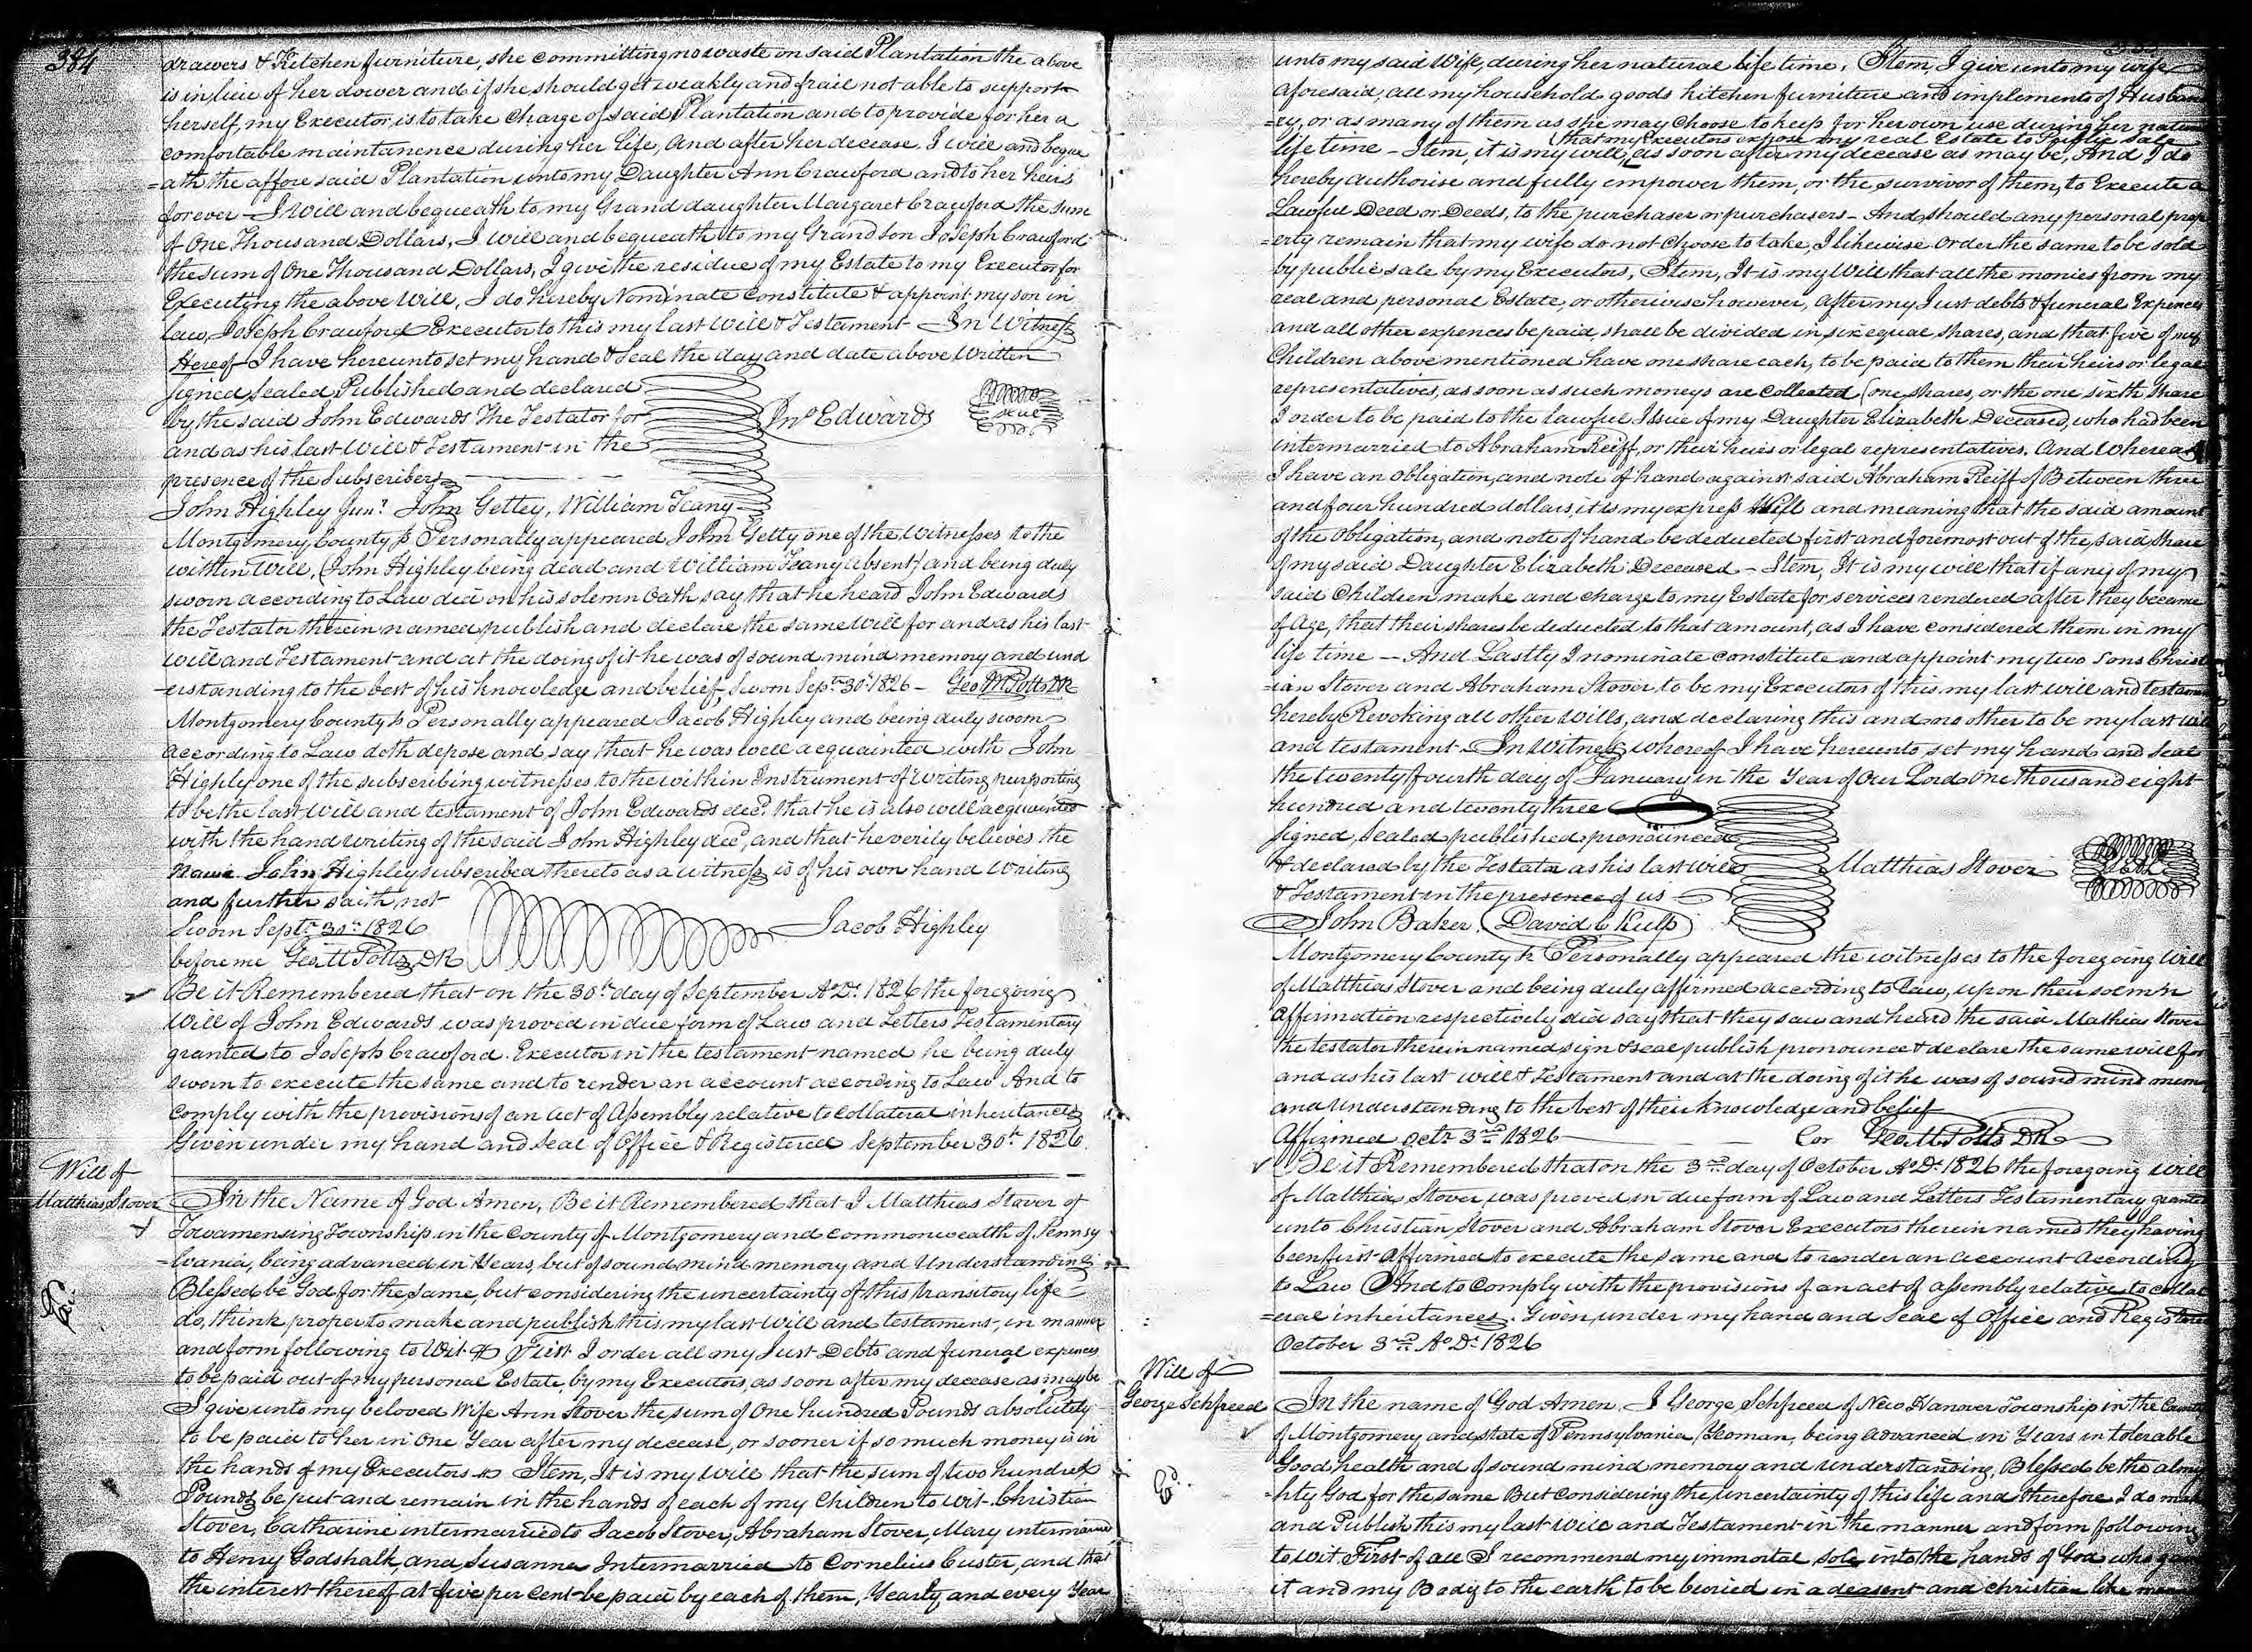 384
drawers & Kitchen furniture, she committing no waste on said Plantation the above
is in lieu of her dower and if she should get weakly and frail not able to support
herself, my Executor is to take Charge of said Plantation and to provide for her a
comfortable maintanence during her life, And after her decease. I will and beque
=ath the affore said Plantation unto my Daughter Ann Crawford and to her heirs
forever - I Will and bequeath to my Grand daughter Margaret Crawford the Sum
of One Thousand Dollars, I will and bequeath to my Grandson Joseph Crawford
the sum of One Thousand Dollars, I give the residue of my Estate to my Executor for
Executing the above Will, I do hereby Nominate Constitute & appoint my son in
law, Joseph Crawford Executor to this my last Will & Testament - In Witness
Hereof I have hereunto set my hand & Seal the day and date above Written
Signed Sealed Published and declared
by the said John Edwards The Testator for
and as his last Will & Testament in the
presence of the Subscribers
Jno Edwards
seal
John Highley Junr. John Gettey, William Teany
Montgomery County ss Personally appeared John Getty one of the Witnesses to the
within Will, (John Highley being dead and William Teany absent) and being duly
sworn according to Law did on his solemn Oath say that he heard John Edwards
the Testator therein named publish and declare the same Will for and as his last
will and Testament and at the doing of it he was of sound mind memory and und
-erstanding to the best of his knowledge and belief, Sworn Sept. 30th 1826 - Geo M Potts DR
Montgomery County ss Personally appeared Jacob Highley and being duly sworn
according to Law doth depose and say that he was well acquainted with John
Highley one of the subscribing witnesses to the within Instrument of Writing purporting
to be the last Will and testament of John Edwards decd. that he is also well acquainted
with the hand writing of the said John Highley decd, and that he verily believes the
Name John Highley subscribed thereto as a witness is of his own hand Writing
and further saith not
Sworn Sept. 30th 1826
before me Geo M Potts DR
Jacob Highley
Be it Remembered that on the 30th day of September Ao. D. 1826 the foregoing
Will of John Edwards was proved in due form of Law and Letters Testamentary
granted to Joseph Crawford Executor in the testament named he being duly
sworn to execute the same and to render an account according to Law And to
comply with the provisions of an act of Assembly relative to Collateral inheritances
Given under my hand and Seal of Office & Registered September 30th 1826.
Will of
Matthias Stover
In the Name of God Amen, Be it Remembered that I Matthias Stover of
Towamensing Township in the County of Montgomery and commonwealth of Pennsy
=lvania, being advanced in Years, but of sound mind memory and Understanding
Blessed be God for the same, but considering the uncertainty of this transitory life
do, think proper to make and publish this my last Will and testament, in manner
and form following to Wit. First I order all my Just Debts and funeral expences
to be paid out of my personal Estate, by my Executors, as soon after my decease as may be
I give unto my beloved Wife Ann Stover the sum of One hundred Pounds absolutely
to be paid to her in One Year after my decease, or sooner if so much money is in
the hands of my Executors Item, It is my Will that the sum of two hundred
Pounds be put and remain in the hands of each of my Children to wit. Christian
Stover, Catharine intermarried to Jacob Stover, Abraham Stover, Mary intermarried
to Henry Godshalk, and Susanna Intermarried to Cornelius Custer, and that
the interest thereof at five per Cent be paid by each of them, Yearly and every Year
unto my said Wife, during her natural life time. Item, I give unto my wife
aforesaid, all my household goods kitchen furniture and implements of Husband
=ry, or as many of them as she may Choose to keep for her own use during her natural
that my Executors expose my real Estate to Public Sale
life time - Item, it is my will, as soon after my decease as may be, And I do
hereby authorise and fully empower them, or the survivor of them, to Execute a
Lawful Deed or Deeds, to the purchaser or purchasers - And should any personal prop
=erty remain that my wife do not Choose to take, I likewise Order the same to be sold
by public sale by my Executors, Item, It is my Will that all the monies from my
real and personal Estate, or otherwise however, after my Just debts & funeral Expences
and all other expences be paid, shall be divided in six equal shares, and that five of my
Children above mentioned have one share each, to be paid to them their heirs or legal
representatives, as soon as such moneys are Collected (one shares, or the one sixth share
I order to be paid to the lawful Issue of my Daughter Elizabeth Deceased, who had been
intermarried to Abraham Reiff, or their heirs or legal representatives. And Whereas
I have an Obligation, and note of hand against said Abraham Reiff of Between three
and four hundred dollars, it is my express Will and meaning that the said amount
of the Obligation, and note of hand be deducted first and foremost out of the said Share
of my said Daughter Elizabeth Deceased - Item, It is my will that if any of my
said Children make and charge to my Estate for services rendered after they became
of Age, that their shares be deducted to that amount, as I have considered them in my
life time - And Lastly I nominate constitute and appoint my two Sons Christ
=ian Stover and Abraham Stover to be my Executors of this my last will and testament
hereby Revoking all other Wills, and declaring this and no other to be my last will
and testament In Witness whereof I have hereunto set my hand and Seal
the twenty fourth day of January in the Year of Our Lord One thousand eight
hundred and twenty three
Signed, Sealed published pronounced
& declared by the Testator as his last Will
& Testament in the presence of us
Matthias Stover
Seal
John Baker, David C Kulp
Montgomery County ss Personally appeared the witnesses to the foregoing Will
of Matthias Stover and being duly affirmed according to Law, upon their solemn
Affirmation respectively did say that they saw and heard the said Mathias Stover
the testator therein named sign & seal publish pronounce & declare the same will for
and as his last will & Testament and at the doing of it he was of sound mind mem
and Understanding to the best of their knowledge and belief
Affirmed Octr. 3rd 1826 Cor Geo M Potts DR
Be it Remembered that on the 3rd day of October Ao. D. 1826 the foregoing will
of Matthias Stover was proved in due form of Law and Letters Testamentary granted
unto Christian Stover and Abraham Stover Executors therein named they having
been first affirmed to execute the same and to render an account according
to Law And to Comply with the provisions of an act of assembly relative to collat
=eral inheritances. Given under my hand and Seal of Office and Registered
October 3rd Ao. D. 1826
Will of
George Schfreed
In the name of God Amen, I George Schfreed of New Hanover Township in the County
of Montgomery and state of Pennsylvania Yeoman, being advanced in Years in tolerable
Good health and of sound mind memory and Understanding, Blessed be the almig
=hty God for the same But considering the uncertainty of this life and therefore I do make
and Publish this my last will and Testament in the manner and form following
to wit First of all I recommend my immortal sole into the hands of God who gave
it and my Body to the earth to be buried in a deasent and christian like manner